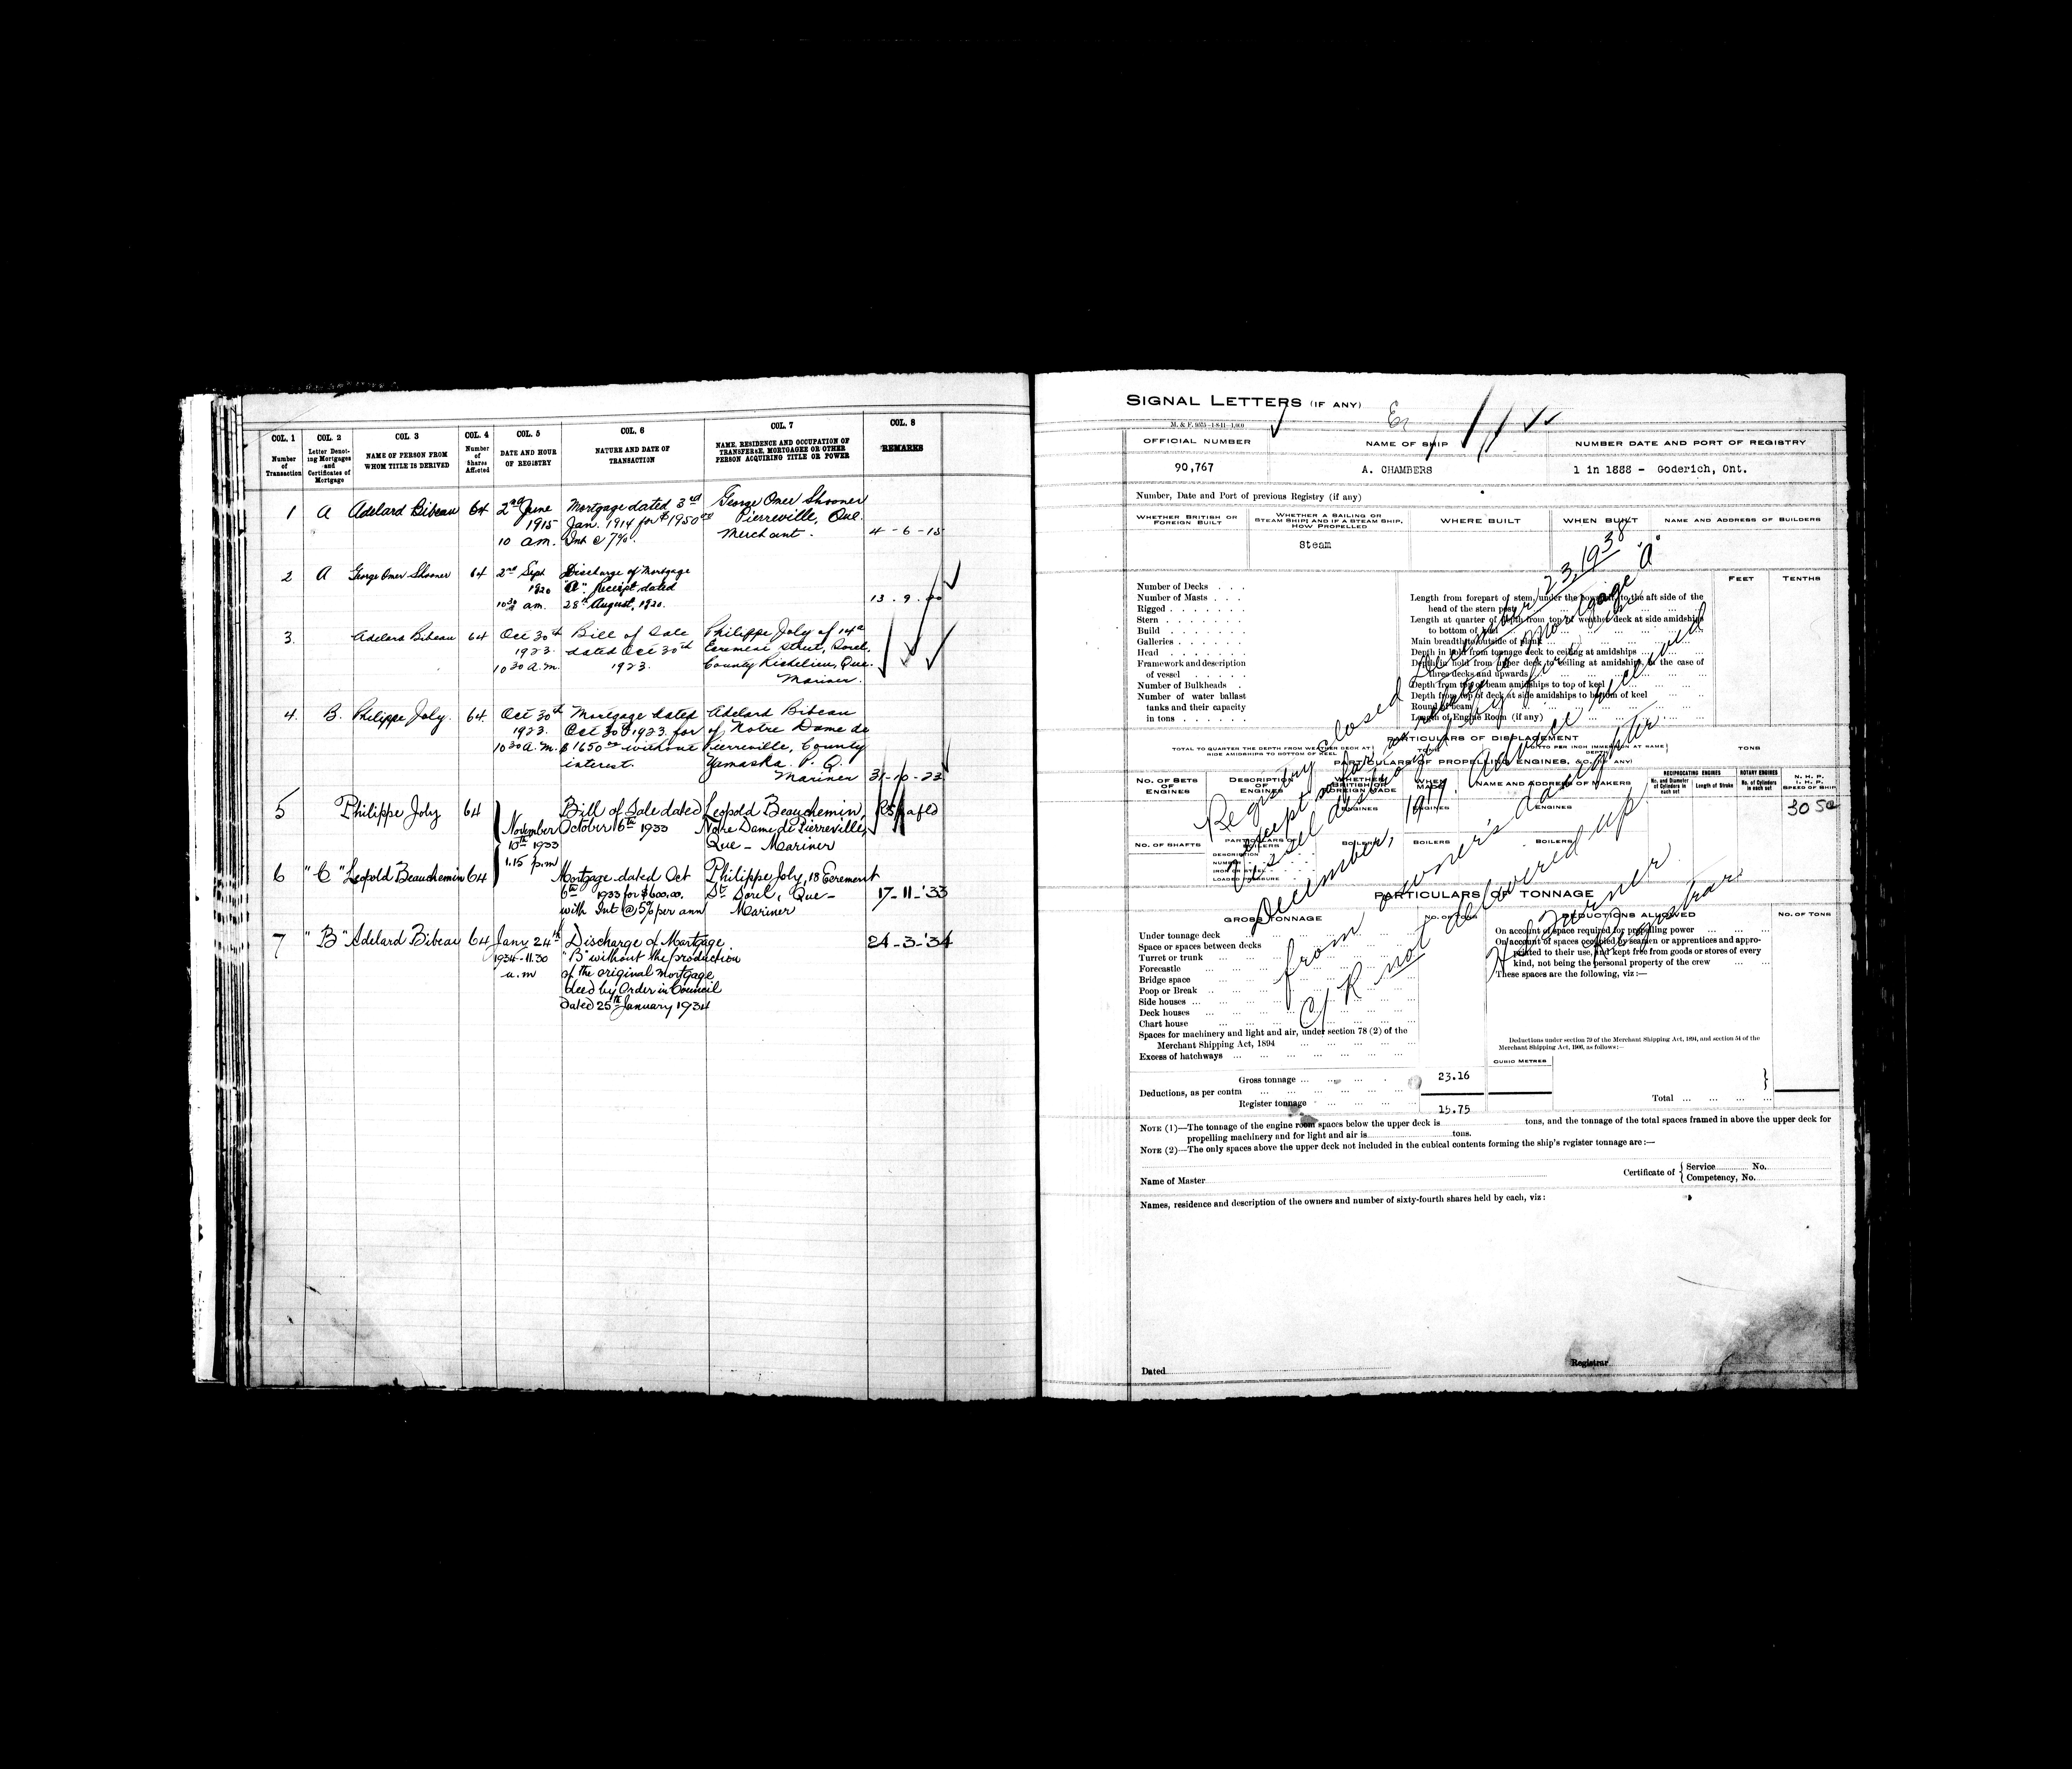 COL. 1
Number
of
Transaction
COL. 2
Letter Denot-
ing Mortgages
and
Certificates of
Mortgage
COL. 3
NAME OF PERSON FROM
WHOM TITLE IS DERIVED
COL. 4
Number
of
Shares
Affected
COL. 5
DATE AND HOUR
OF REGISTRY
COL. 6
NATURE AND DATE OF
TRANSACTION
COL. 7
NAME, RESIDENCE AND OCCUPATION OF
TRANSFEREE, MORTGAGEE OR OTHER
PERSON ACQUIRING TITLE OR POWER
COL. 8
REMARKS
1 A Adelard Bibeau 64 2nd June Mortgage dated 3rd George Omer Shooner
1915 Jan. 1914 for $1950 00 Pierreville, Que.
10 am. Int @ 7%. Merchant. 4-6-15
2 A George Omer Shooner 64 2nd Sept Discharge of Mortgage
1920 "A". Receipt dated
10 30 am. 28th August, 1920. 13.9.20
3. Adelard Bibeau 64 Oct 30th Bill of Sale Philippe Joly of
1923. dated Oct 30th street, Sorel,
10 30 A.M. 1923. County Richelieu, Que.
Mariner.
4. B. Philippe Joly. 64. Oct 30th Mortgage dated Adelard Bibeau
1923. Oct 30th 1923. for of Notre Dame de
10 30 A.M. $1650 00 without Pierreville, County
interest. Yamaska. P. Q.
Mariner 31-10-23
5 Philippe Joly 64 Bill of Sale dated Leopold Beauchemin,
November October 6th 1933 Notre Dame de Pierreville,
10th 1933 Que - Mariner
1.15 p.m
6 "C" Leopold Beauchemin 64 Mortgage dated Oct Philippe Joly, 18
6th 1933 for $600.00. St. Sorel, Que-
with Int @ 5% per ann Mariner 17-11-'33
7 "B" Adelard Bibeau 64 Jany 24th Discharge of Mortgage 24-3-'34
1934-11.30 "B" without the production
a.m of the original mortgage
deed by Order in Council
dated 25th January 1934
SIGNAL LETTERS (IF ANY)
OFFICIAL NUMBER
NAME OF SHIP
NUMBER DATE AND PORT OF REGISTRY
90,767
A. CHAMBERS
1 in 1888 - Goderich, Ont.
Number, Date and Port of previous Registry (if any)
WHETHER BRITISH OR
FOREIGN BUILT
WHETHER A SAILING OR
STEAM SHIP; AND IF A STEAM SHIP,
HOW PROPELLED
WHERE BUILT
WHEN BUILT
NAME AND ADDRESS OF BUILDERS
Steam
FEET
TENTHS
Number of Decks
Number of Masts
Rigged
Stern
Build
Galleries
Head
Framework and description
of vessel
Number of Bulkheads
Number of water ballast
tanks and their capacity
in tons
Length from forepart of stem, under the bowsprit, to the aft side of the
head of the stern post
Length at quarter of depth from top of weather deck at side amidships
to bottom of keel
Main breadth to outside of plank
Depth in hold from tonnage deck to ceiling at amidships
Depth in hold from upper deck to ceiling at amidships, in the case of
three decks and upwards
Depth from top of beam amidships to top of keel
Depth from top of deck at side amidships to bottom of keel
Round of beam
Length of Engine Room (if any)
Registry closed December 23, 1938
except so far as relates to mortgage "A"
Vessel destroyed by fire in
December, 1917. Advice received
from owner's daughter.
C/R not delivered up
Registrar
PARTICULARS OF DISPLACEMENT
TOTAL TO QUARTER THE DEPTH FROM WEATHER DECK AT
SIDE AMIDSHIPS TO BOTTOM OF KEEL
TONS
DITTO PER INCH IMMERSION AT SAME
DEPTH
TONS
PARTICULARS OF PROPELLING ENGINES, &C. (IF ANY)
NO. OF SETS
OF
ENGINES
DESCRIPTION
OF
ENGINES
WHETHER
BRITISH OR
FOREIGN MADE
WHEN
MADE
NAME AND ADDRESS OF MAKERS
RECIPROCATING ENGINES
No. and Diameter
of Cylinders in
each set
Length of Stroke
ROTARY ENGINES
No. of Cylinders
in each set
N. H. P.
I. H. P.
SPEED OF SHIP
ENGINES
ENGINES
ENGINES
NO. OF SHAFTS
PARTICULARS OF
BOILERS
DESCRIPTION
NUMBER
IRON OR STEEL
LOADED PRESSURE
BOILERS
BOILERS
BOILERS
PARTICULARS OF TONNAGE
GROSS TONNAGE
NO. OF TONS
DEDUCTIONS ALLOWED
NO. OF TONS
Under tonnage deck
Space or spaces between decks
Turret or trunk
Forecastle
Bridge space
Poop or Break
Side houses
Deck houses
Chart house
Spaces for machinery and light and air, under section 78 (2) of the
Merchant Shipping Act, 1894
Excess of hatchways
On account of space required for propelling power
On account of spaces occupied by seamen or apprentices and appro-
priated to their use, and kept free from goods or stores of every
kind, not being the personal property of the crew
These spaces are the following, viz:—
Deductions under section 79 of the Merchant Shipping Act, 1894, and section 54 of the
Merchant Shipping Act, 1906, as follows:—
CUBIC METRES
Gross tonnage
23.16
Deductions, as per contra
Register tonnage
15.75
Total
NOTE (1)—The tonnage of the engine room spaces below the upper deck is tons, and the tonnage of the total spaces framed in above the upper deck for
propelling machinery and for light and air is tons.
NOTE (2)—The only spaces above the upper deck not included in the cubical contents forming the ship's register tonnage are:—
Name of Master
Certificate of
Service No.
Competency, No.
Names, residence and description of the owners and number of sixty-fourth shares held by each, viz:
Dated
Registrar